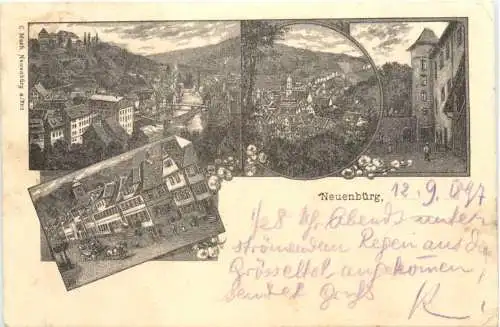 C. Meeh, Neuenbürg a/Enz
Neuenbürg, 12.9.97
Abends unter
strömenden Regen aus d
Grösseltal angekommen,
sendet Gruß
K!